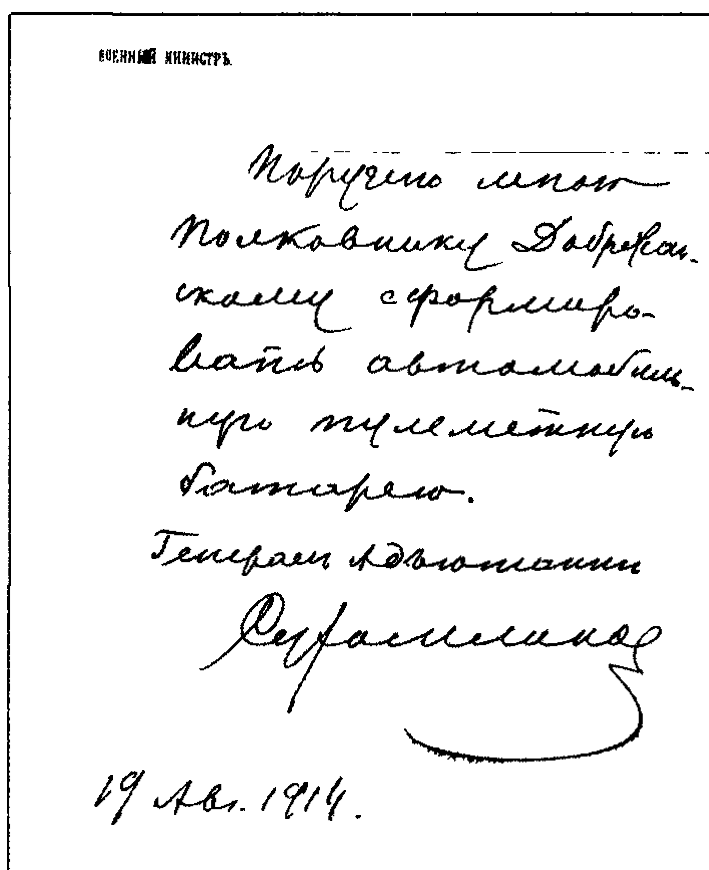 ВОЕННЫЙ МИНИСТРЪ.
Поручено мною
Полковнику Добржан-
скому сформиро-
вать автомобиль-
ную пулеметную
батарею.
Генерал Адъютант
Сухомлинов
19 Авг. 1914.